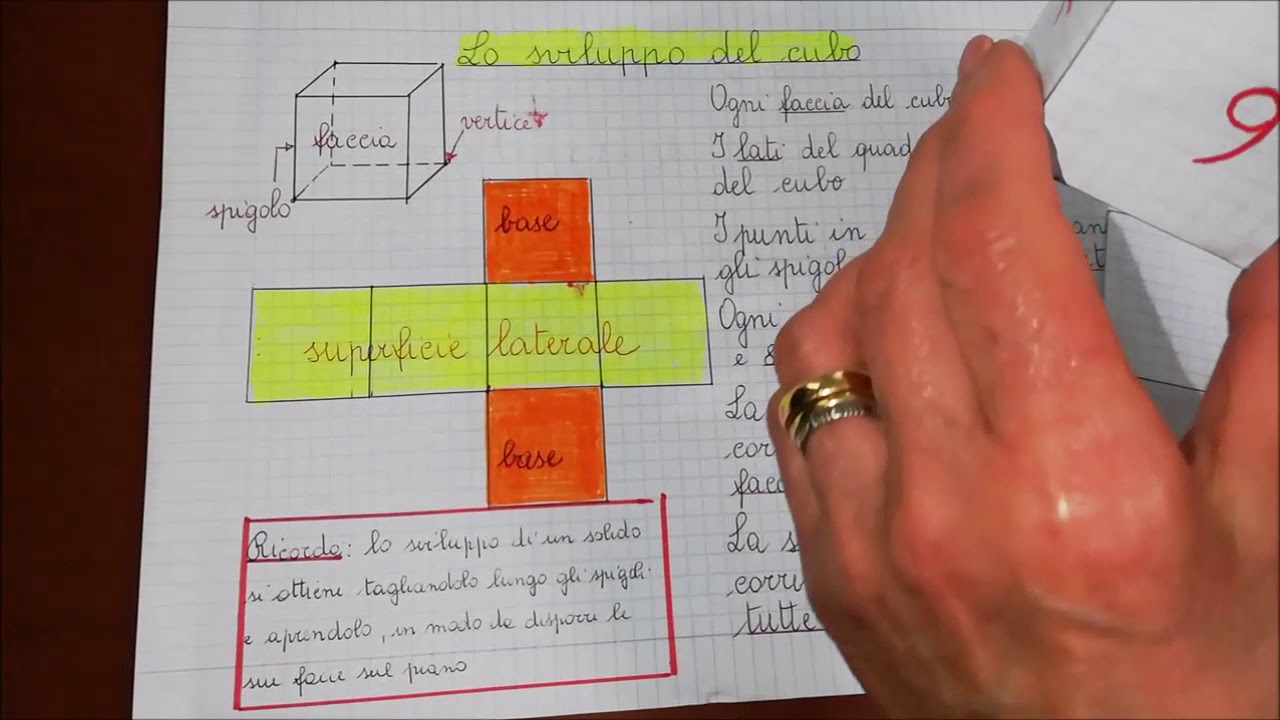 Lo sviluppo del cubo
faccia
vertice
spigolo
base
superficie laterale
base
Ricorda: lo sviluppo di un solido
si ottiene tagliandolo lungo gli spigoli
e aprendolo, in modo da disporre le
sue facce sul piano
Ogni faccia del
I lati del
del cubo
I punti in
gli
Ogni
e 8
La
La
tutte
9